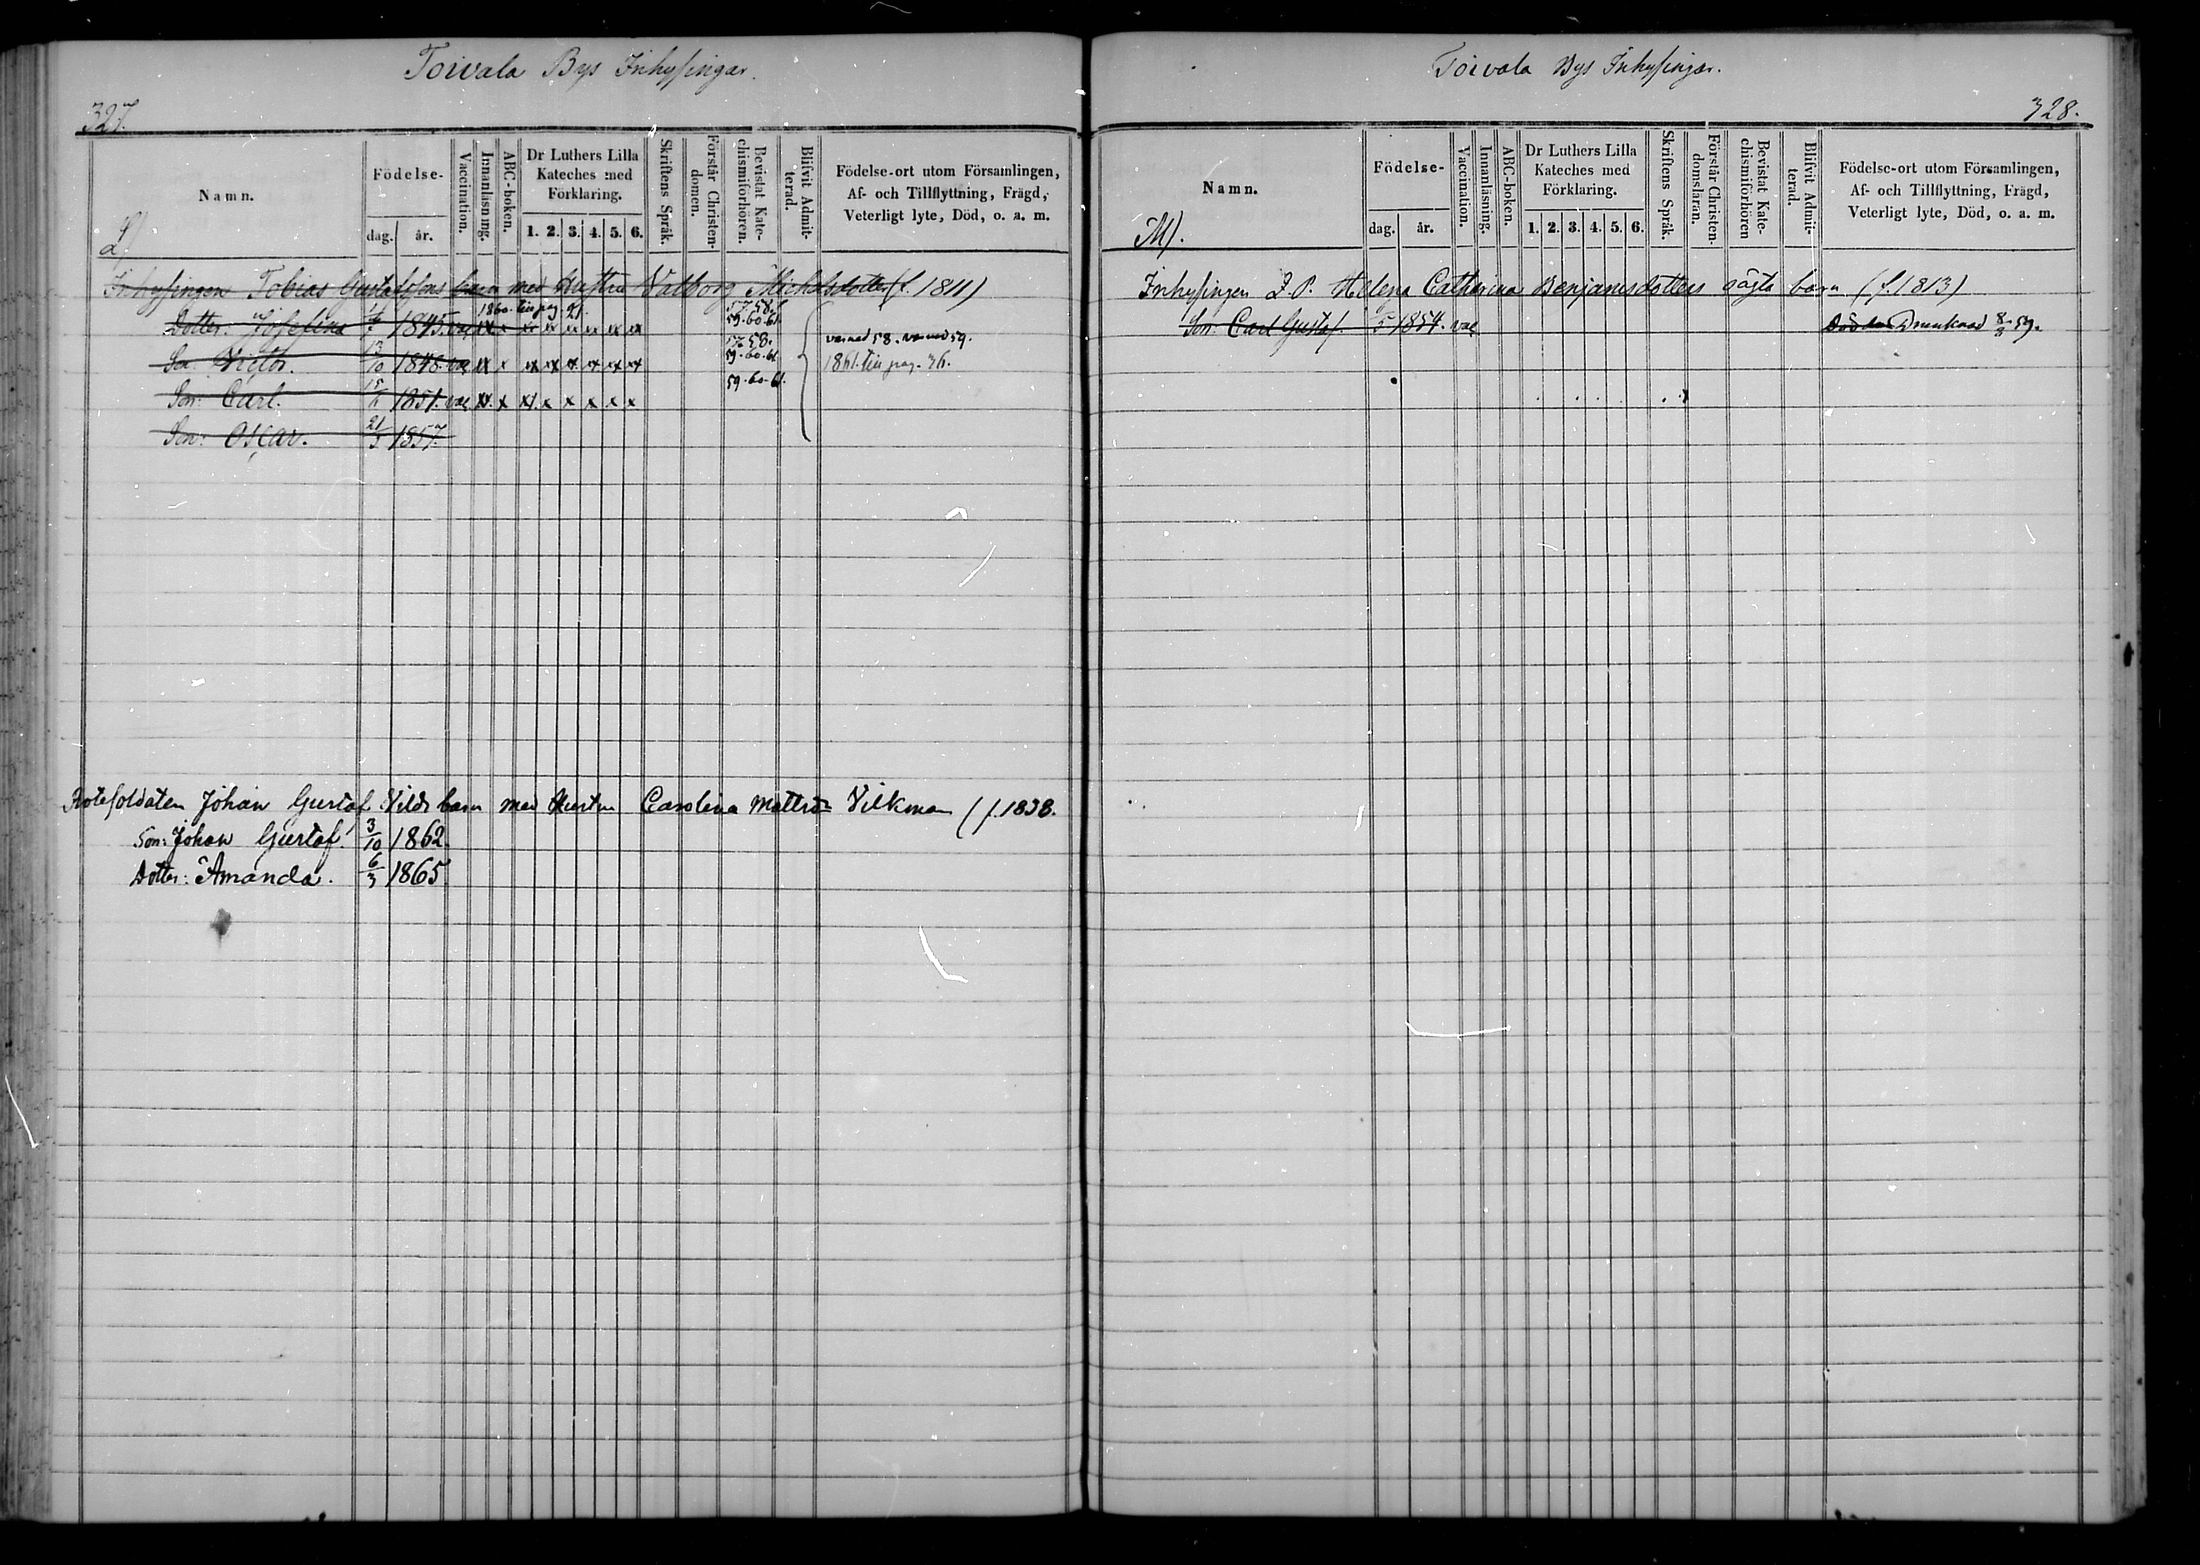 Toivala Bys Inhysingar.
327.
Namn.
Födelse-
dag. år.
Vaccination.
Innanläsning.
ABC-boken.
Dr Luthers Lilla Kateches med Förklaring.
1. 2. 3. 4. 5. 6.
Skriftens Språk.
Förstår Christen-domen.
Bevistat Kate-chismiförhören.
Blifvit Admit-terad.
Födelse-ort utom Församlingen,
Af- och Tillflyttning, Frägd,
Veterligt lyte, Död, o. a. m.
L)
Inhysingen Tobias Gustafssons barn med Hustru Valborg Michelsdotter (f. 1811)
1860. till pag 21.
57. 58.
Dotter: Josefina 1845. vac x x x x x x x x 59. 60. 61.
57. 58. varnad 58. varnad 59.
Son Victor. 13/10 1848. vac x x x x x x x x 59. 60. 61. 1861. till pag. 36.
59. 60. 61.
Son: Carl. 15/2 1851. vac x x x x x x x x
Son: Oscar. 21/3 1857.
Rotesoldaten Johan Gustaf Vilds barn med Hustru Carolina Mattsdr Vilkman (f. 1838.
Son: Johan Gustaf 3/10 1862.
Dotter: Amanda. 6/3 1865.
Toivola Bys Inhysingar.
328.
Namn.
Födelse-
dag. år.
Vaccination.
Innanläsning.
ABC-boken.
Dr Luthers Lilla Kateches med Förklaring.
1. 2. 3. 4. 5. 6.
Skriftens Språk.
Förstår Christen-domsläran.
Bevistat Kate-chismiförhören
Blifvit Admit-terad.
Födelse-ort utom Församlingen,
Af- och Tillflyttning, Frägd,
Veterligt lyte, Död, o. a. m.
M).
Inhysingen L. P. Helena Catharina Benjamsdotters oägta barn (f. 1813)
Son: Carl Gustaf. 1854. vac Drunknad 8/8 59.